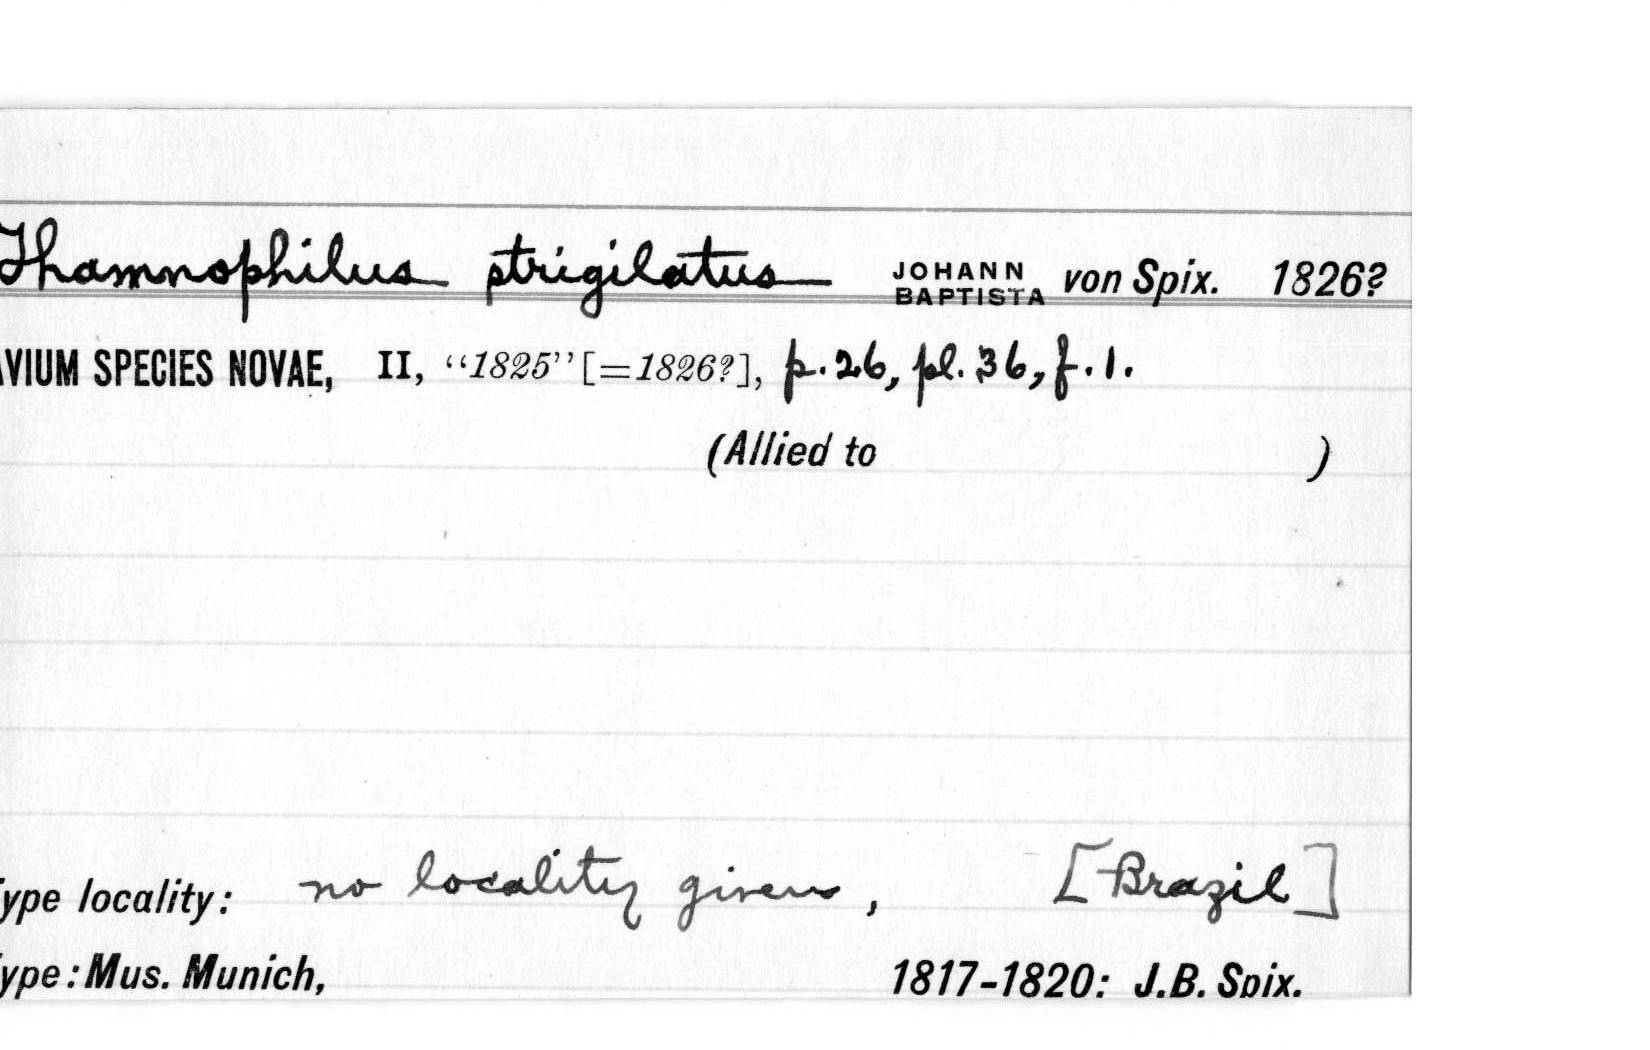 Thamnophilus strigilatus JOHANN BAPTISTA von Spix. 1826?
AVIUM SPECIES NOVAE, II, “1825” [=1826?], p. 26, pl. 36, f. 1.
(Allied to )
Type locality: no locality given, [Brazil]
Type: Mus. Munich, 1817-1820: J.B. Spix.